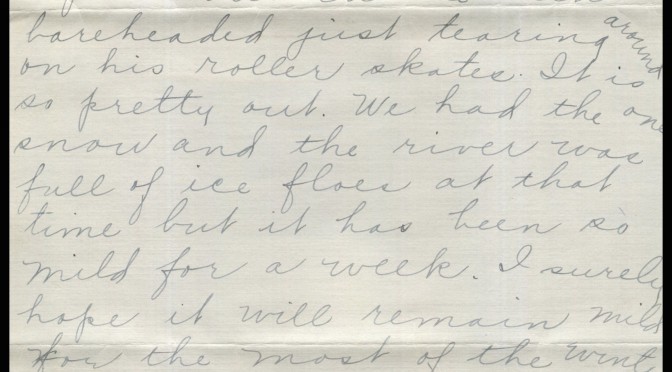 bareheaded just tearing around
on his roller skates. It is
so pretty out. We had the one
snow and the river was
full of ice floes at that
time but it has been so
mild for a week. I surely
hope it will remain mild
for the most of the wint